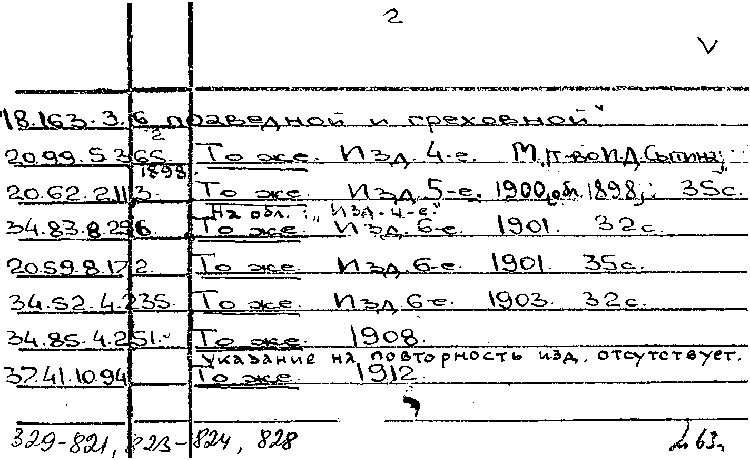 2
V
18.163.3.6 праведной и греховной"
2
20.99.5.365. То же. Изд. 4-е. М., т-во И.Д. Сытина,
1898.
20.62.2.113. То же. Изд. 5-е. 1900, обл. 1898. 35с.
На обл.: „Изд. 4-е."
34.83.8.296 То же. Изд. 6-е. 1901. 32с.
20.59.8.172 То же. Изд. 6-е. 1901. 35с.
34.52.4.235. То же. Изд. 6-е. 1903. 32с.
34.85.4.251. То же. 1908.
указание на повторность изд. отсутствует.
37.41.10.94 То же. 1912.
329-821, 823-824, 828
63,